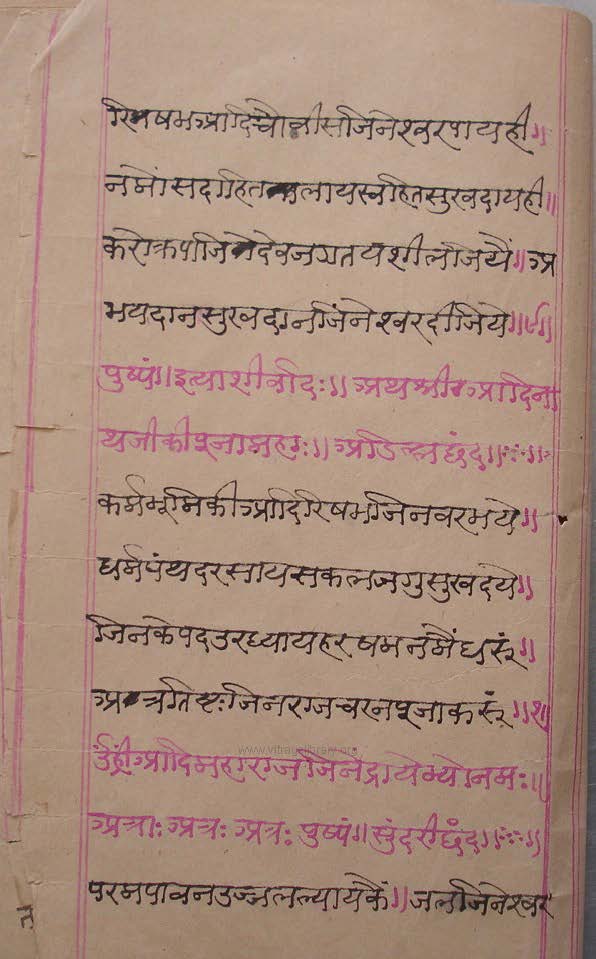 रिषभआदिचौवीसजिनेश्वरपायही॥
नमोंसदाहित लायस्वहितसुखदायही॥
करोक्रपाजिनदेवजगतयशलीजियैं॥अ
भयदानसुखदानजिनेश्वरदीजिये॥
पुष्पं॥इत्याशीर्वादः॥अथश्रीआदिना
थजीकीपूजा ॥अडिल्लछंद॥ः॥
कर्मभूमिकीआदिरिषभजिनवरभये॥
धर्मपंथदरसायसकलजगुसुखदये॥
जिनकेपदउरध्यायहरषमनमैंधरूं॥
अत्रतिष्टःजिनराजचरनपूजाकरूं॥१॥
www.vitragilibrary.org
ॐह्रींआदिमहाराजजिनेंद्रायेभ्योनमः॥
अत्राःअत्रःअत्रःपुष्पं॥सुंदरीछंद॥ः॥
परमपावनउज्जलल्यायकैं॥जलजिनेश्वर